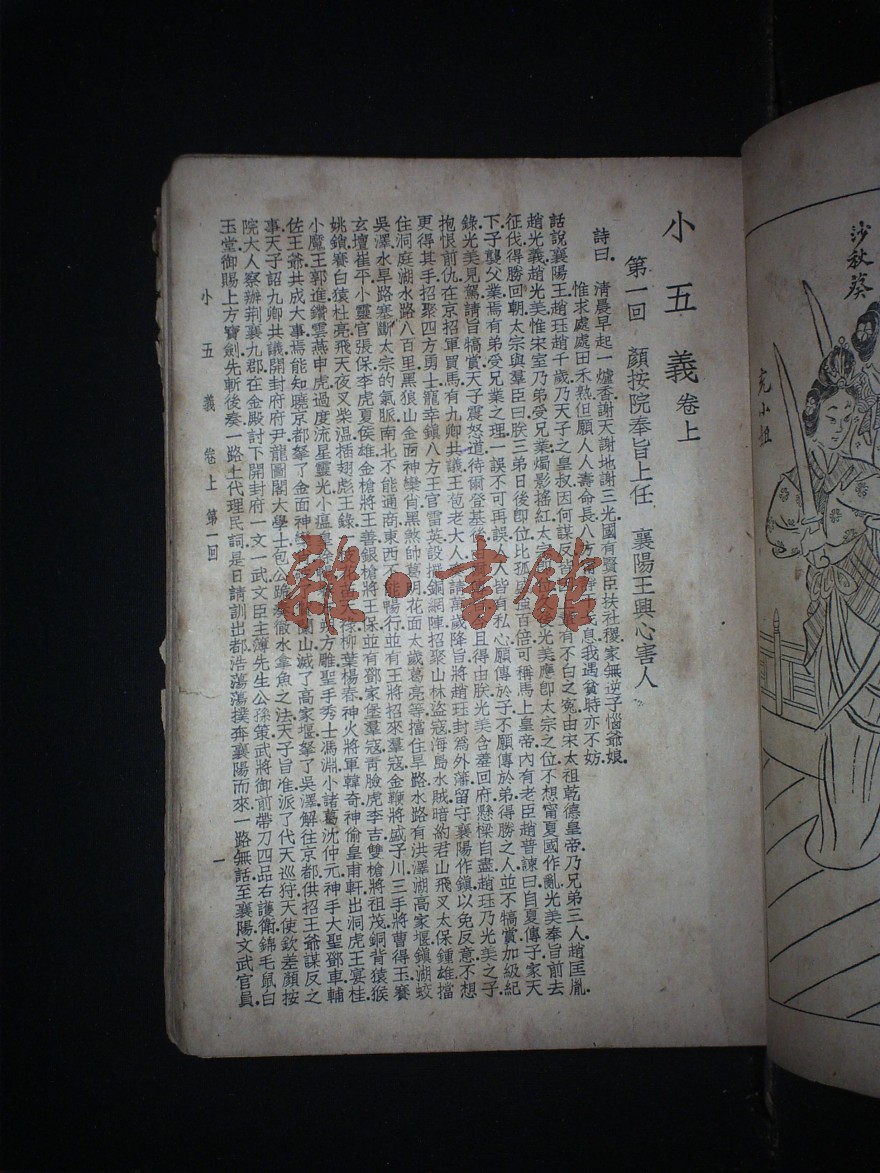 沙秋葵
小五義 卷上
第一回 顏按院奉旨上任 襄陽王興心害人
詩曰 清晨早起一爐香謝天謝地謝三光國有賢臣扶社稷家無逆子惱爺娘
惟求處處田禾熟但願人人壽命長八方 息我遇貧時亦不妨
話說襄陽王趙珏趙千歲乃天子之皇叔因何謀反 有不白之冤由宋太祖乾德皇帝乃兄弟三人趙匡胤
趙光義趙光美惟宋室乃弟受兄業燭影搖紅太宗即位 光美應卽太宗之位不想甯夏國作亂光美奉旨前去
征伐得勝回朝太宗與羣臣曰朕三弟日後卽位比孤 強百倍可稱馬上皇帝內有老臣趙普諫曰自夏傳子家天
下子襲父業焉有弟受兄業之理一誤不可再誤 人皆有私心願傳於子不願傳於弟得勝之人並不犒賞加級紀
錄光美見駕請旨犒賞天子震怒道待爾登基後 且得由朕光美含羞回府懸樑自盡趙珏乃光美之子
抱恨前仇在京招軍買馬有九卿共議王苞老大人 請萬歲降旨將趙珏封爲外藩留守襄陽作鎭以免反意不想
更得其手招聚四方勇士寵幸鎭八方王官雷英設擺銅網陣招聚山林盜寇海島水賊暗約君山飛叉太保鍾雄擋
住洞庭湖水路八百里黑狼山金面神欒肖黑煞帥葛明花面太歲葛亮等擋住旱路水路有洪澤湖高家堰鎭湖蛟
吳澤水旱路塞斷太宗的氣脈南北不能通商東西不能暢行並有王將招來羣寇金鞭將盛子川三手將曹得玉賽
玄壇崔平小靈官張保李虎夏侯雄金槍將王善銀槍將王保並有鄧家堡羣寇靑臉虎李吉雙槍將祖茂銅背猿猴
姚鎖賽白猿杜亮飛天夜叉柴溫插翅彪王錄一 祿柳葉楊春神火將軍韓奇神偷皇甫軒出洞虎王宴桂
小魔王郭進鑽雲燕申虎過度流星靈光小瘟皇徐 方雕聖手秀士馮淵小諸葛沈仲元神手大聖鄧車輔
佐王爺共成大事焉能知曉京都拏了金面神欒 蘭山滅了高家堰拏了吳澤解往京都供招王爺謀反之
事天子詔九卿共議開封府府尹龍圖閣大學士包公跪奏徹水拿魚之法天子旨准派了代天巡狩天使欽差顏按
院大人察辦荆襄九郡在金殿討下開封府一文一武文臣主簿先生公孫策武將御前帶刀四品右護衛錦毛鼠白
玉堂御賜上方寶劍先斬後奏一路土代理民詞是日請訓出都浩蕩蕩撲奔襄陽而來一路無話至襄陽文武官員
小五義 卷上 第一回 一
雜·書館